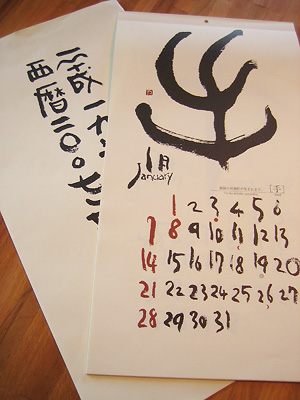 西暦二〇〇七
1月
January
1 2 3 4 5 6
7 8 9 10 11 12 13
14 15 16 17 18 19 20
21 22 23 24 25 26 27
28 29 30 31